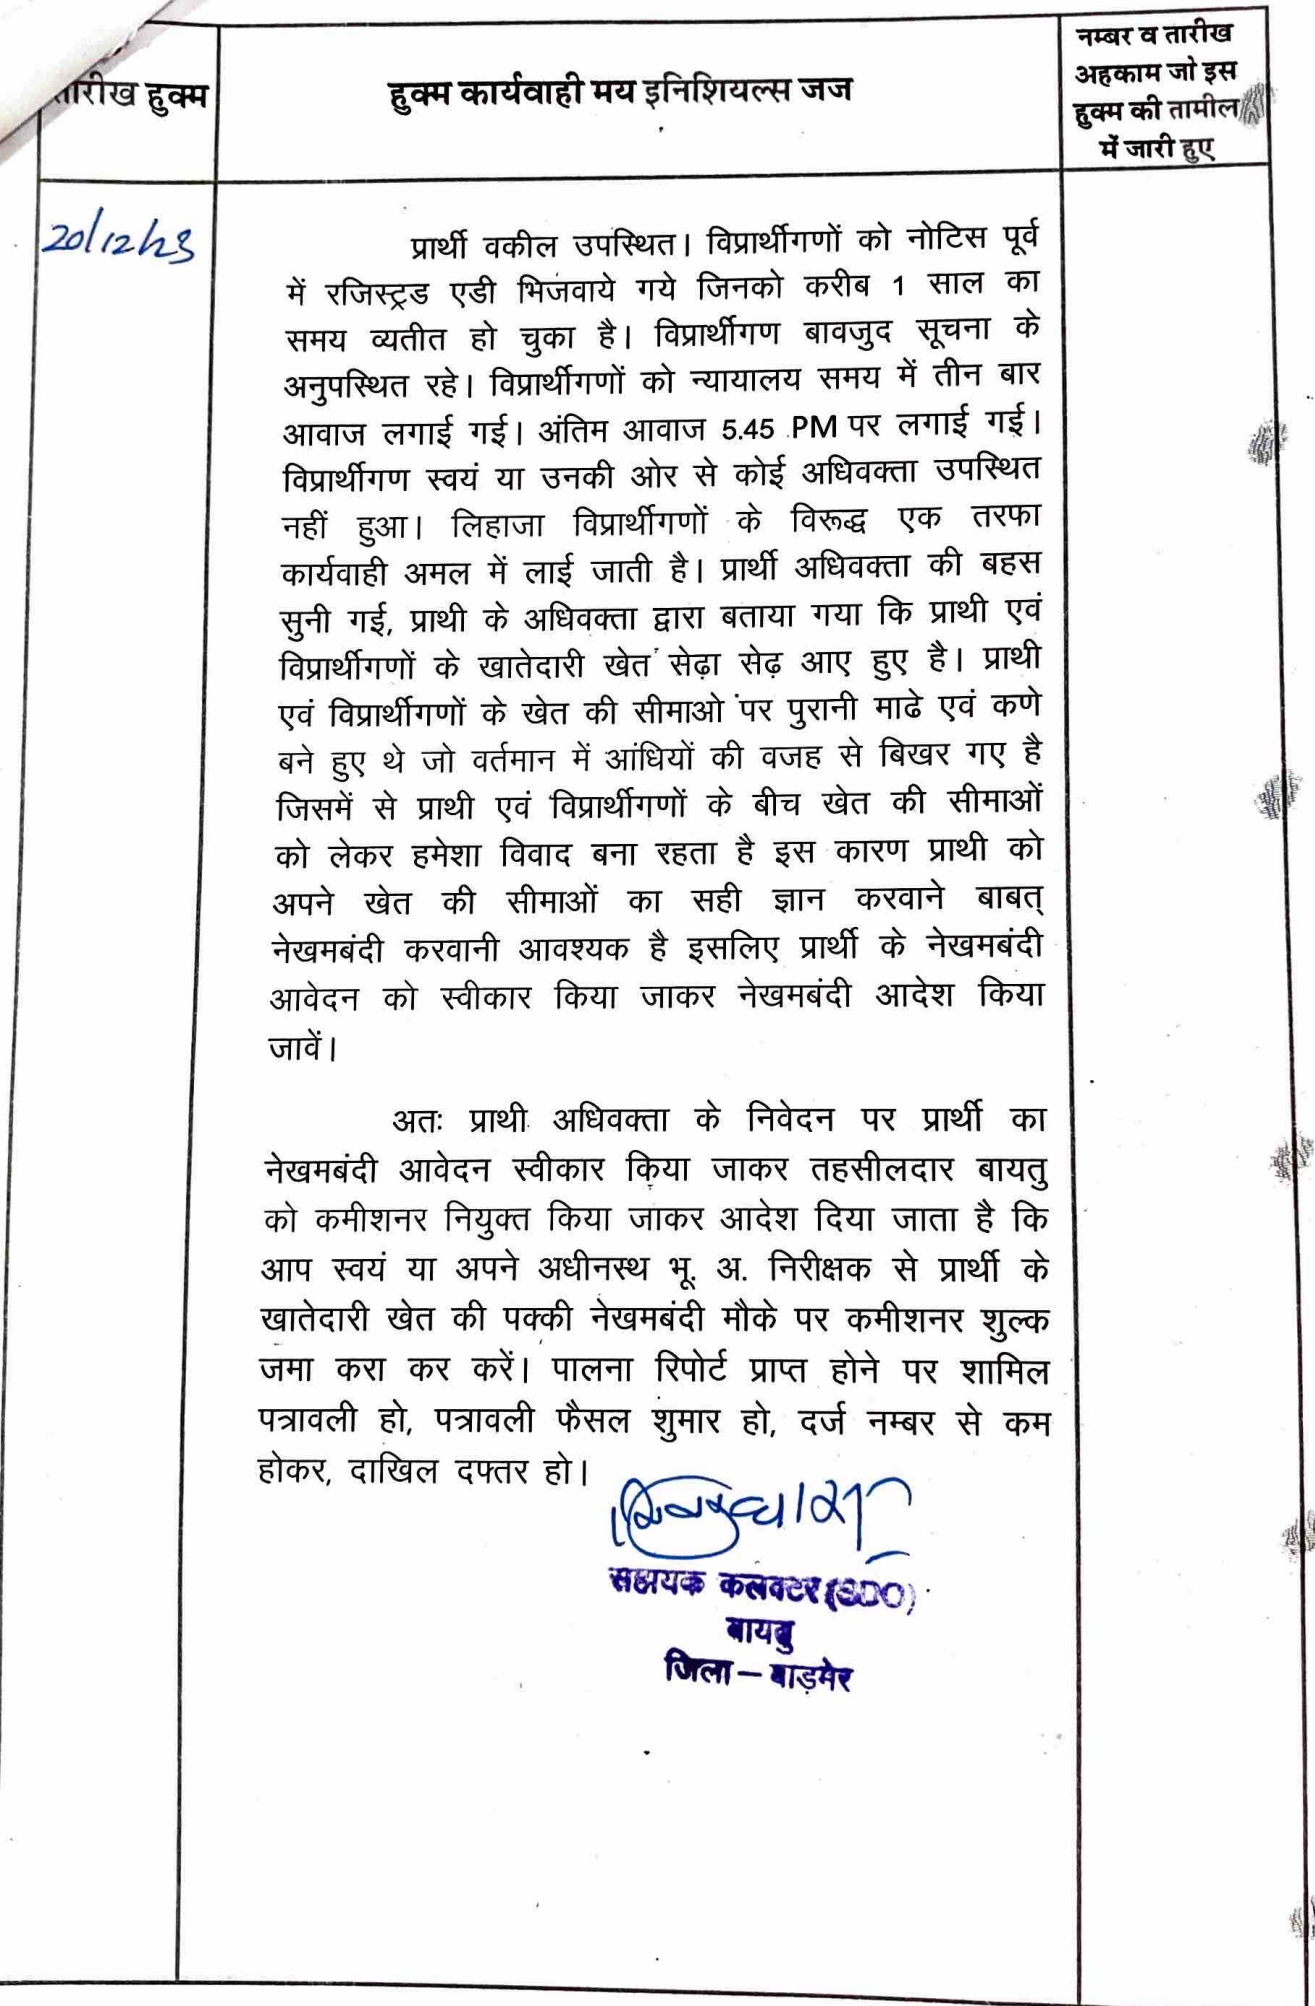 तारीख हुक्म
हुक्म कार्यवाही मय इनिशियल्स जज
नम्बर व तारीख
अहकाम जो इस
हुक्म की तामील
में जारी हुए
20/12/23
प्रार्थी वकील उपस्थित। विप्रार्थीगणों को नोटिस पूर्व
में रजिस्ट्रड एडी भिजवाये गये जिनको करीब 1 साल का
समय व्यतीत हो चुका है। विप्रार्थीगण बावजुद सूचना के
अनुपस्थित रहे। विप्रार्थीगणों को न्यायालय समय में तीन बार
आवाज लगाई गई। अंतिम आवाज 5.45 PM पर लगाई गई।
विप्रार्थीगण स्वयं या उनकी ओर से कोई अधिवक्ता उपस्थित
नहीं हुआ। लिहाजा विप्रार्थीगणों के विरूद्ध एक तरफा
कार्यवाही अमल में लाई जाती है। प्रार्थी अधिवक्ता की बहस
सुनी गई, प्राथी के अधिवक्ता द्वारा बताया गया कि प्राथी एवं
विप्रार्थीगणों के खातेदारी खेत सेढ़ा सेढ़ आए हुए है। प्राथी
एवं विप्रार्थीगणों के खेत की सीमाओ पर पुरानी माढे एवं कणे
बने हुए थे जो वर्तमान में आंधियों की वजह से बिखर गए है
जिसमें से प्राथी एवं विप्रार्थीगणों के बीच खेत की सीमाओं
को लेकर हमेशा विवाद बना रहता है इस कारण प्राथी को
अपने खेत की सीमाओं का सही ज्ञान करवाने बाबत्
नेखमबंदी करवानी आवश्यक है इसलिए प्रार्थी के नेखमबंदी
आवेदन को स्वीकार किया जाकर नेखमबंदी आदेश किया
जावें।
अतः प्राथी अधिवक्ता के निवेदन पर प्रार्थी का
नेखमबंदी आवेदन स्वीकार किया जाकर तहसीलदार बायतु
को कमीशनर नियुक्त किया जाकर आदेश दिया जाता है कि
आप स्वयं या अपने अधीनस्थ भू. अ. निरीक्षक से प्रार्थी के
खातेदारी खेत की पक्की नेखमबंदी मौके पर कमीशनर शुल्क
जमा करा कर करें। पालना रिपोर्ट प्राप्त होने पर शामिल
पत्रावली हो, पत्रावली फैसल शुमार हो, दर्ज नम्बर से कम
होकर, दाखिल दफ्तर हो।
सहायक कलक्टर (SDO)
बायतु
जिला – बाड़मेर